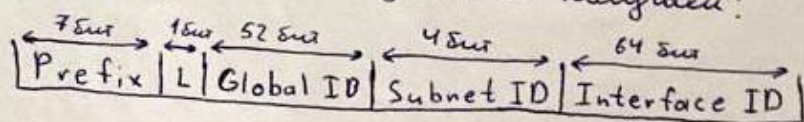 7 бит 1 бит 52 бит 4 бит 64 бит
Prefix L Global ID Subnet ID Interface ID